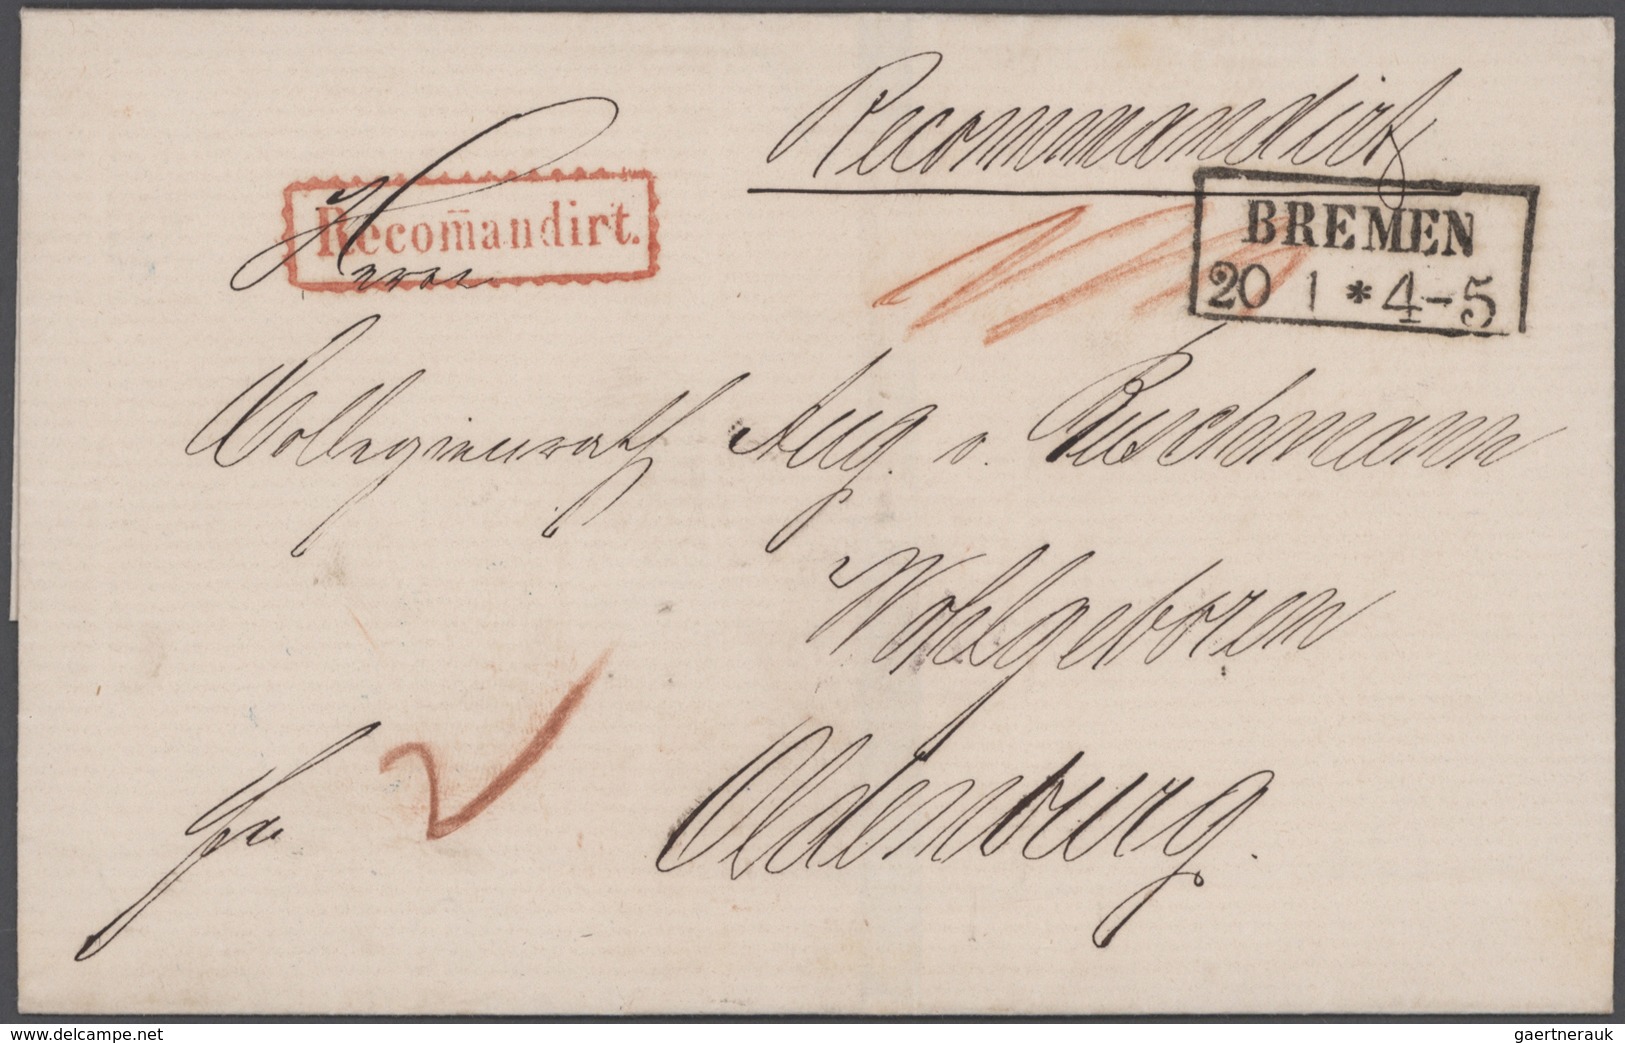 Recommandirt
Recom̄andirt.
BREMEN
20 1 * 4-5
Herrn
Collegienrath Aug. v. Buschmann
Wohlgeboren
fr 2 Oldenburg.
www.delcampe.net
gaertnerauk